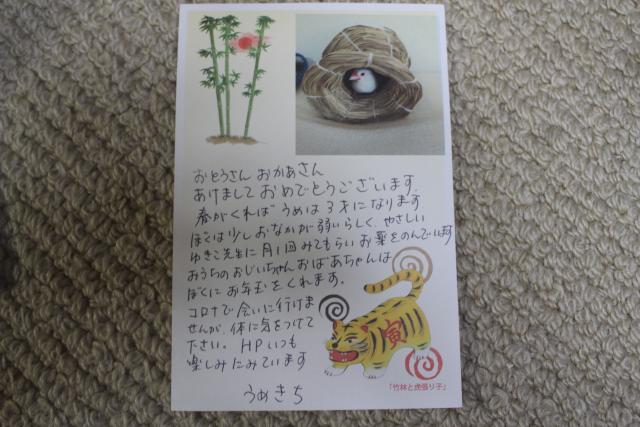 おとうさん おかあさん
あけましておめでとうございます。
春がくれば うめは 3才になります
ぼくは少しおなかが弱いらしく、やさしい
ゆきこ先生に月1回みてもらいお薬をのんでいます
おうちのおじいちゃんおばあちゃんは
ぼくにお年玉をくれます。
コロナで会いに行けま
せんが、体に気をつけて
下さい。HPいつも
楽しみにみています
うめきち
寅
「竹林と虎張り子」